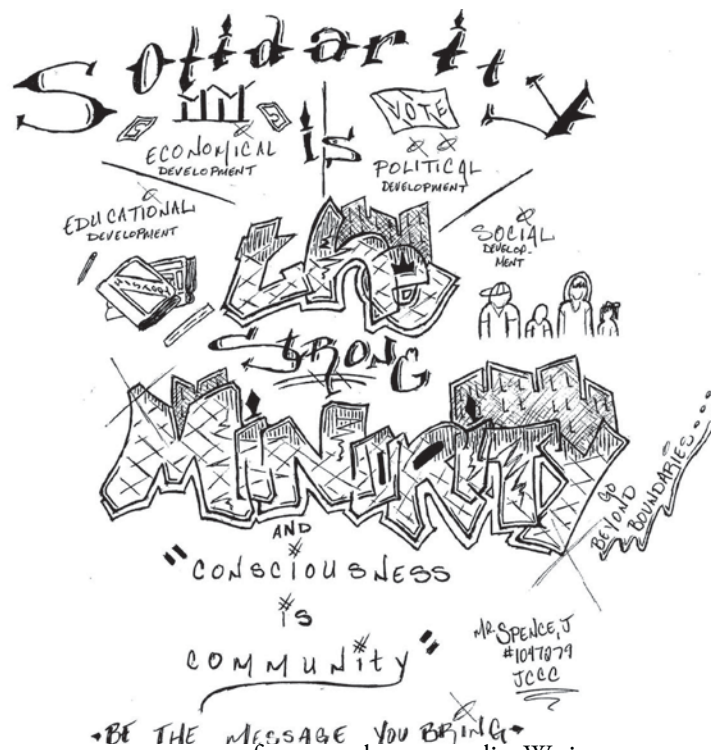 Solidarity
is
ECONOMICAL
DEVELOPMENT
VOTE
POLITICAL
DEVELOPMENT
EDUCATIONAL
DEVELOPMENT
SOCIAL
DEVELOP-
MENT
the
STRONG
MINORITY
GO
BEYOND
BOUNDARIES...
AND
"CONSCIOUSNESS
is
COMMUNity"
MR. SPENCE, J
#1097279
JCCC
BE THE MESSAGE YOU BRING